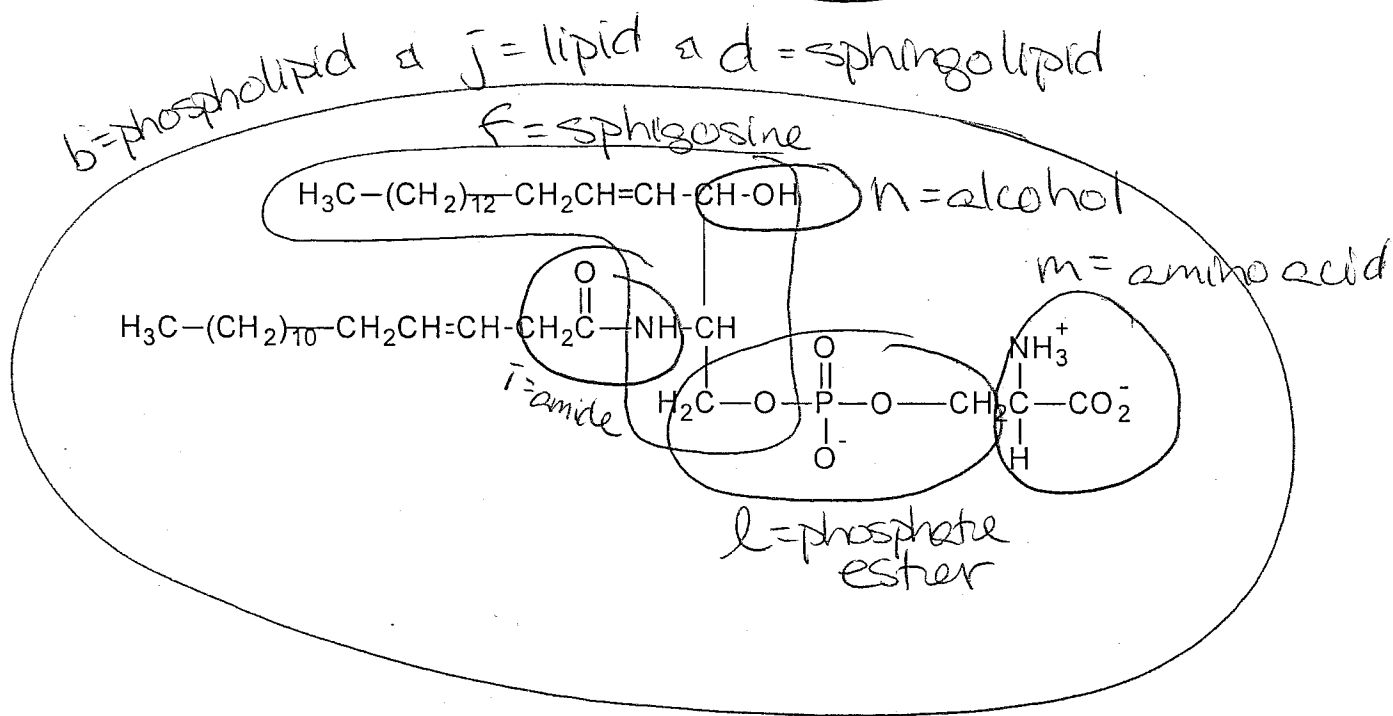 b=phospholipid & j=lipid & d=sphingolipid
f=sphigosine
H₃C−(CH₂)₁₂−CH₂CH=CH-CH-OH
n=alcohol
m=amino acid
O
H₃C−(CH₂)₁₀−CH₂CH=CH-CH₂C−NH-CH
i=amide
O
NH₃⁺
H₂C−O−P−O−CH₂C−CO₂⁻
O⁻
H
l=phosphate
ester